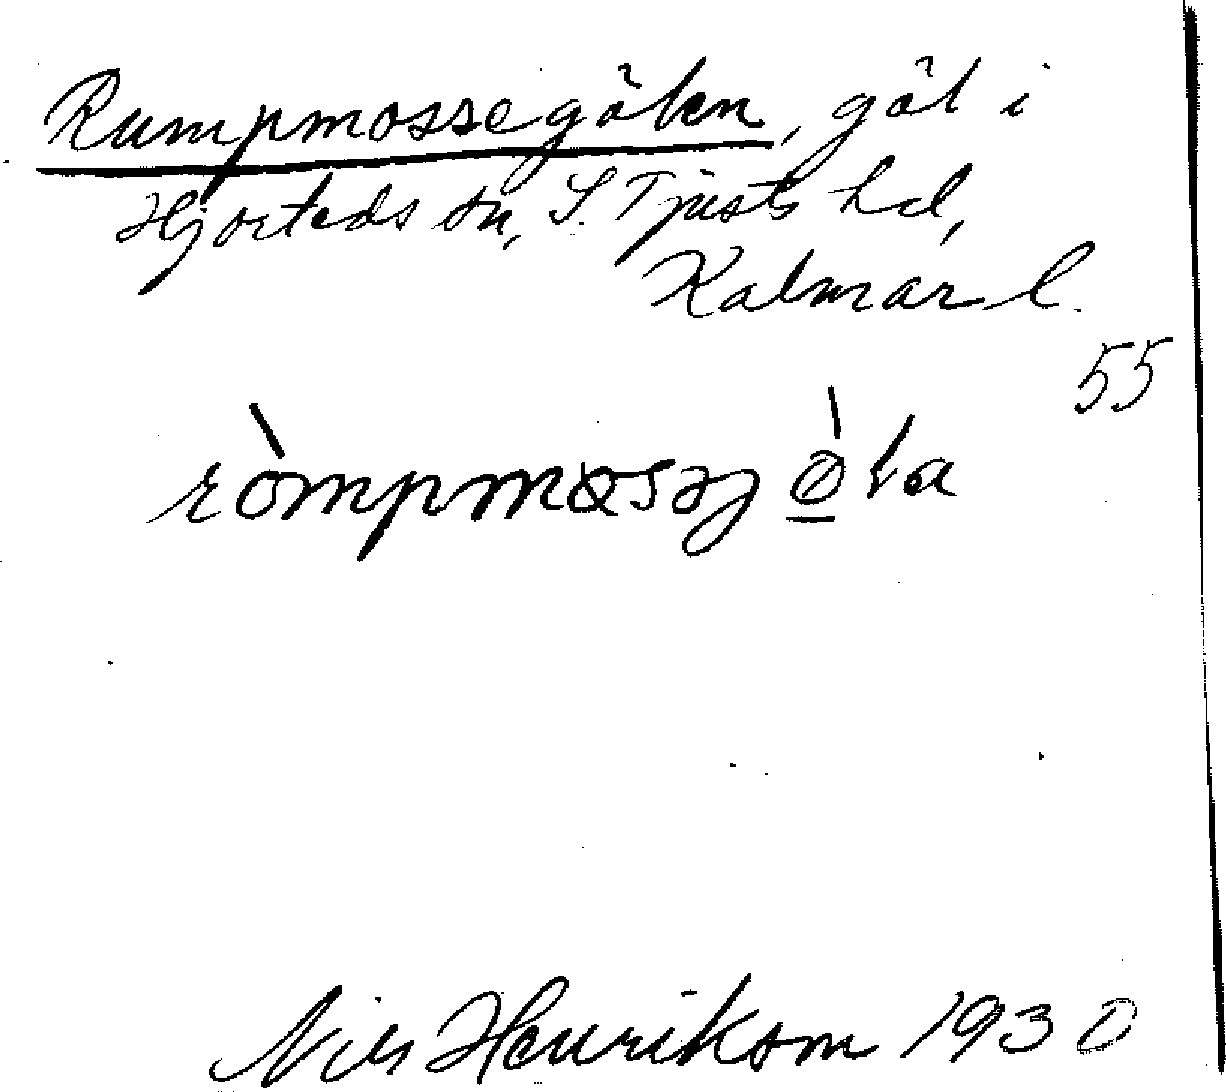 Rumpmossegölen, göl i
Hjorteds sn, S. Tjusts hd,
Kalmar l.
55
ròmpmosəjø̀la
Nils Henrikson 1930